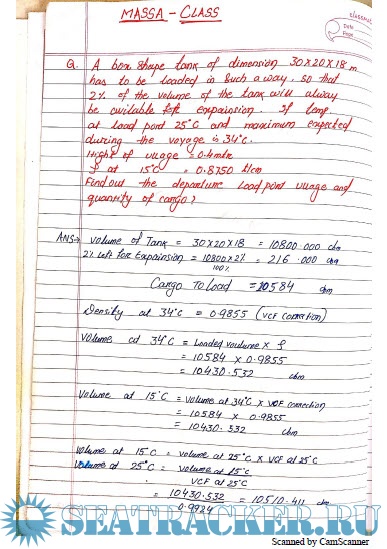 MASSA - CLASS
classmate
Date
Page
Q. A box shape tank of dimension 30x20x18 m
has to be loaded in such a way, so that
2% of the volume of the tank will alway
be avilable left expainsion. If temp.
at load port 25°C and maximum expected
during the voyage is 34°C.
Hight of ullage = 0.4mtr
ρ at 15°C = 0.8750 t/cm
Find out the departure Load port ullage and
quantity of cargo?
ANS→ volume of Tank = 30x20x18 = 10800.000 cbm
2% Left For Expainsion = 10800x2% = 216.000 cbm
100%
Cargo To Load = 10584 cbm
Density at 34°C = 0.9855 (VCF Correction)
Volume at 34°C = Loaded voulume x ρ
= 10584 x 0.9855
= 10430.532 cbm
Volume at 15°C = volume at 34°C x VCF correction
= 10584 x 0.9855
= 10430.532 cbm
volume at 15°C = volume at 25°C x VCF at 25°C
Volume at 25°C = volume at 15°C
VCF at 25°C
= 10430.532 = 10510.411 cbm
0.9924
SEATRACKER.RU
Scanned by CamScanner